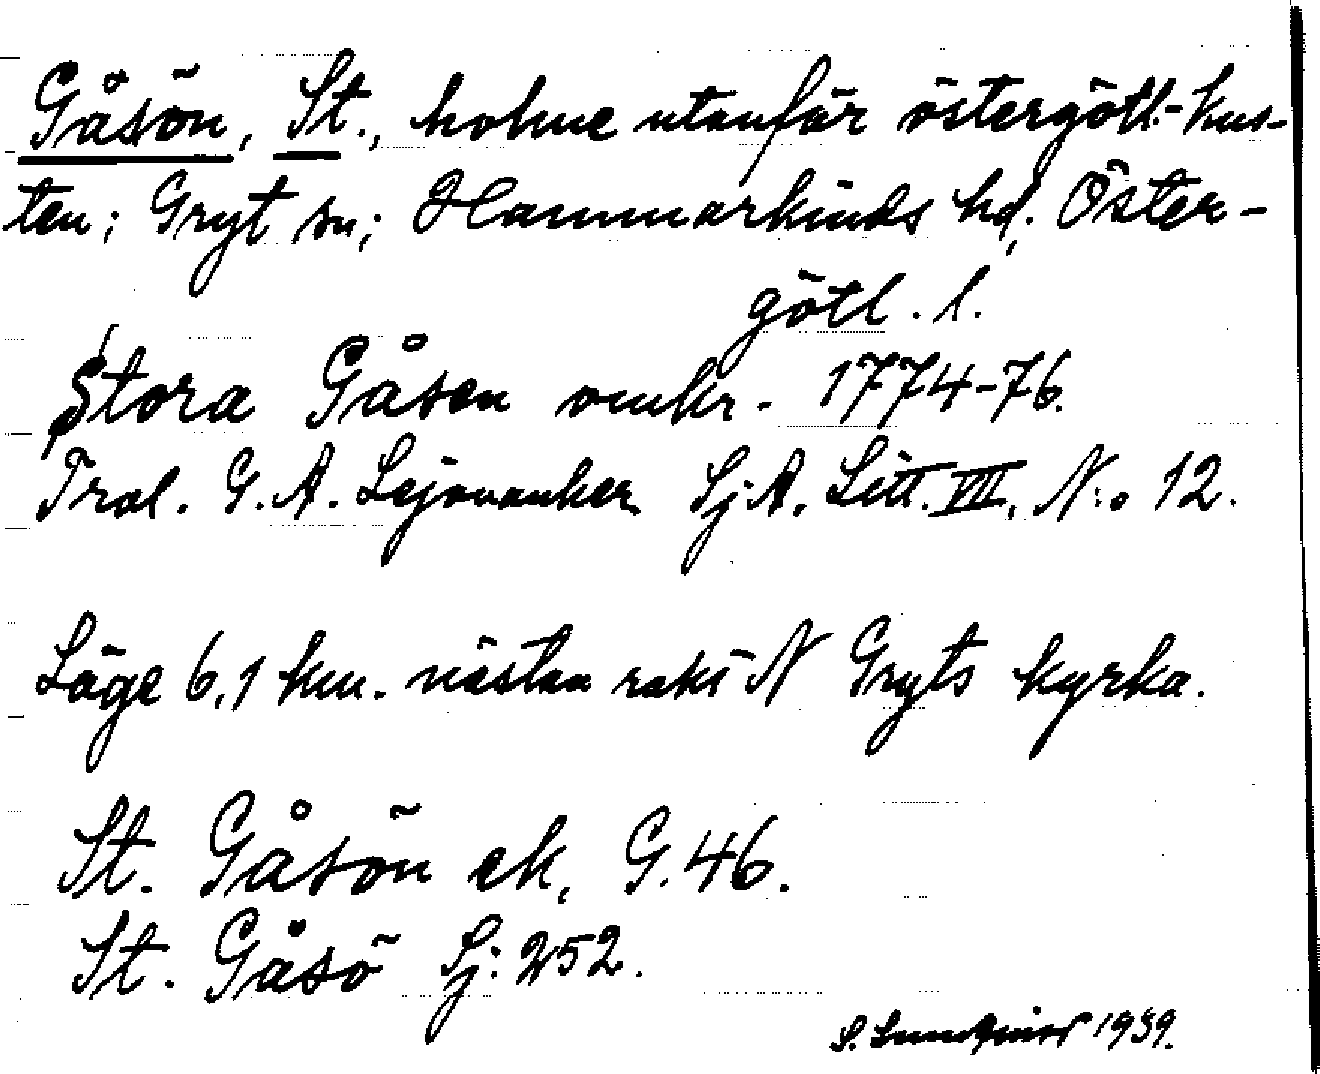 Gåsön, St., holme utanför östergötl.-kus-
ten; Gryt sn; Hammarkinds hd. Öster-
götl. l.
Stora Gåsen omkr. 1774-76.
Tral. G. A. Lejonanker Sj.A. Litt. VII, N:o 12.
Läge 6,1 km. nästan rakt N Gryts kyrka.
St. Gåsön ek, G. 46.
St. Gåsö Sj: 252.
S. Lundqvist 1939.